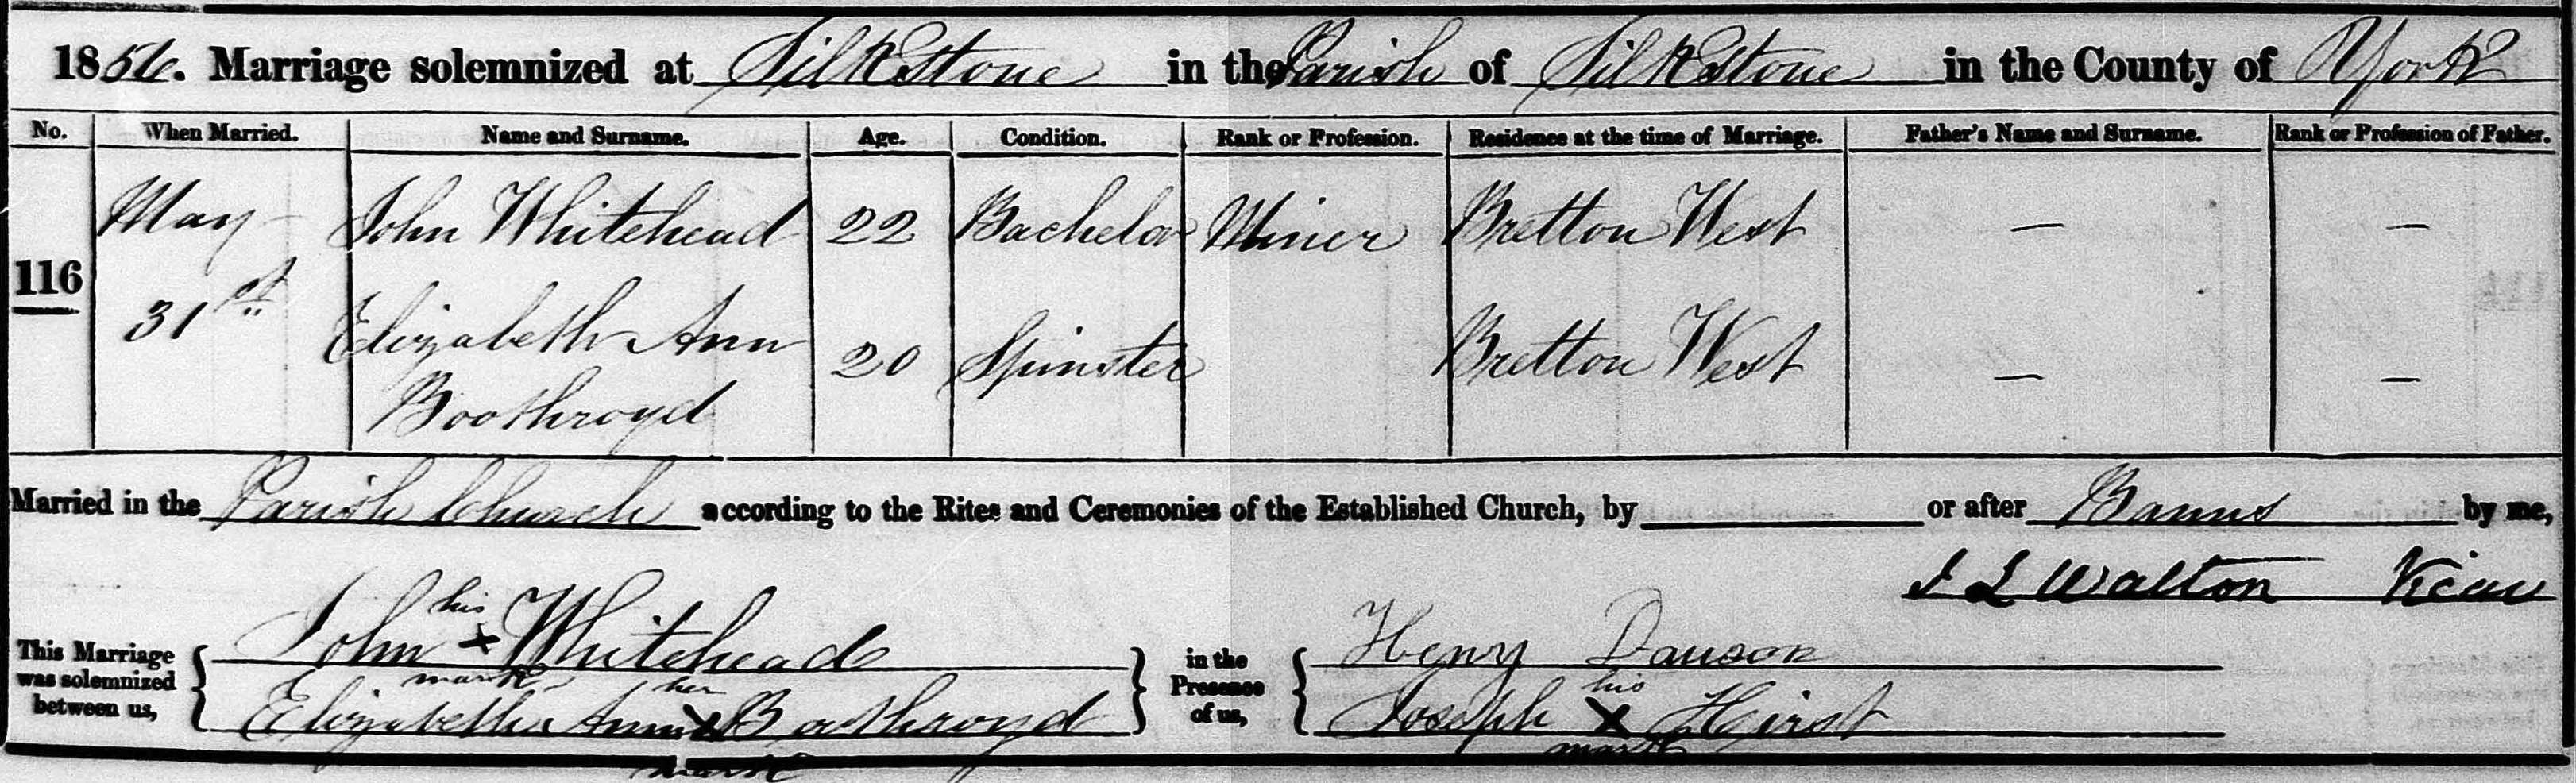 1856. Marriage solemnized at Silkstone in the Parish of Silkstone in the County of York
No. When Married. Name and Surname. Age. Condition. Rank or Profession. Residence at the time of Marriage. Father's Name and Surname. Rank or Profession of Father.
116 May John Whitehead 22 Bachelor Miner Bretton West — —
31st Elizabeth Ann 20 Spinster Bretton West — —
Boothroyd
Married in the Parish Church according to the Rites and Ceremonies of the Established Church, by or after Banns by me,
J L Walton Vicar
This Marriage was solemnized between us,
John his x mark Whitehead
Elizabeth Ann her x mark Boothroyd
in the Presence of us,
Heny Dawson
Joseph his x mark Hirst